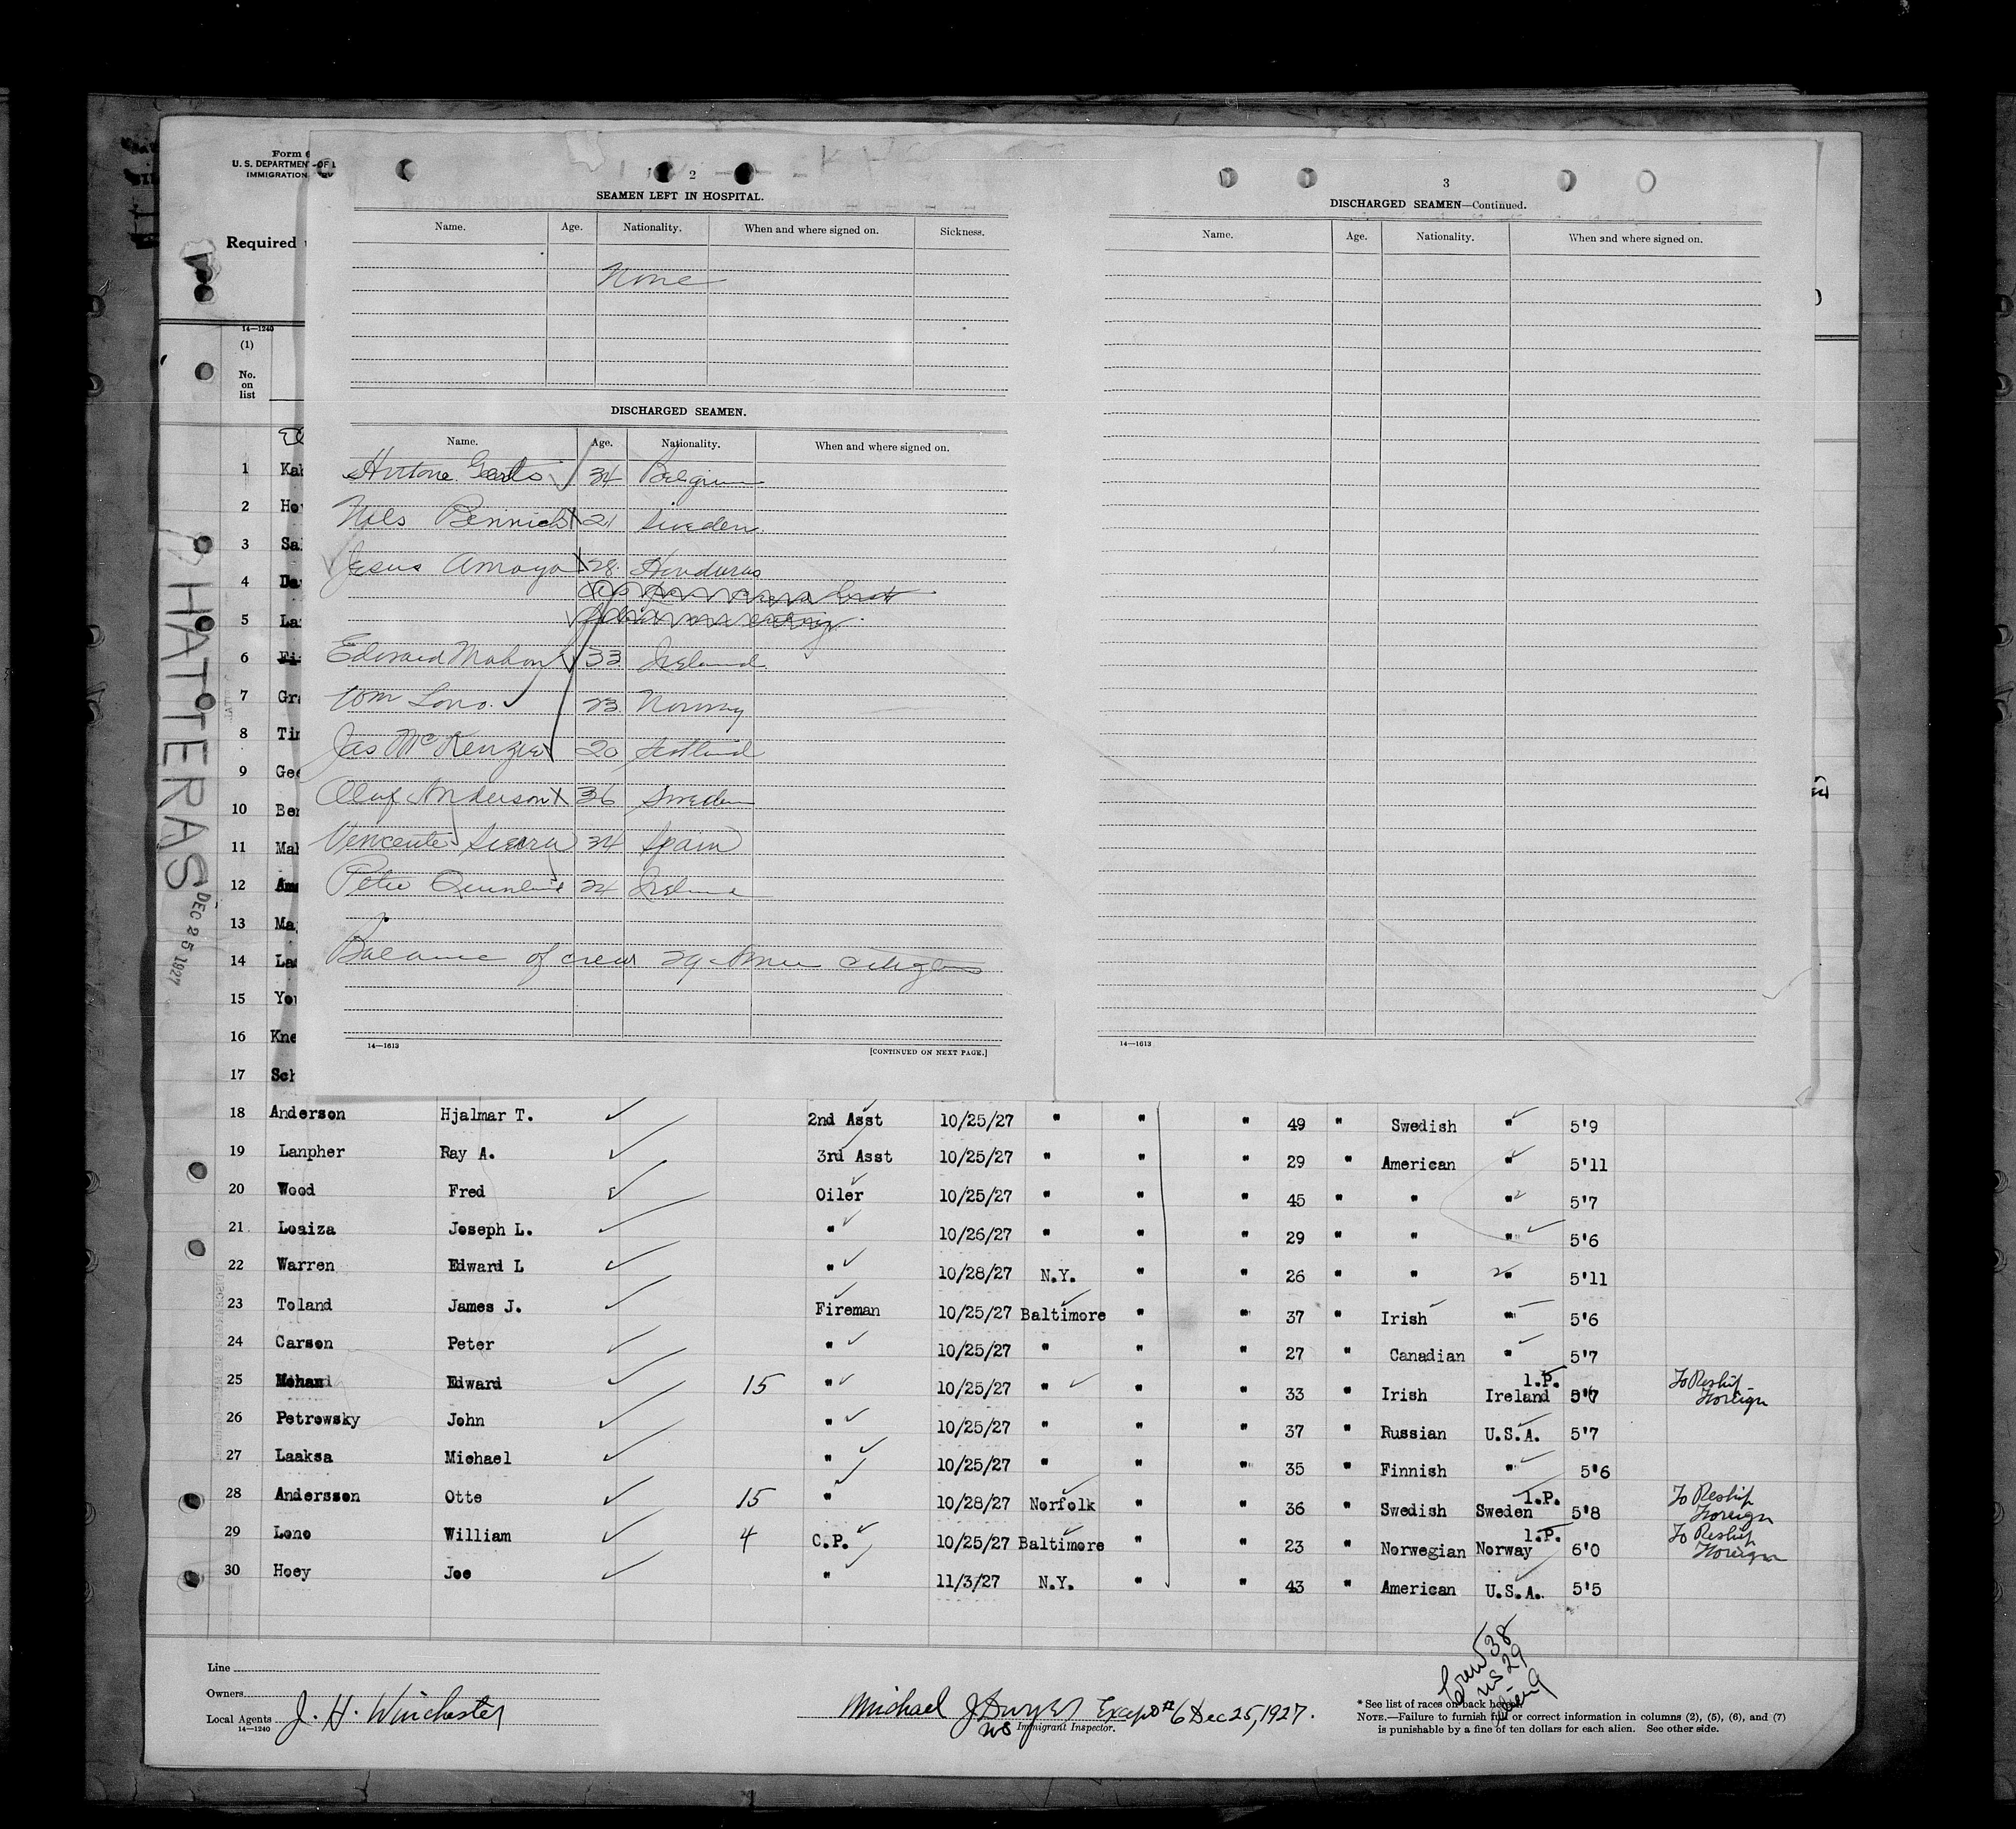 Form
U. S. DEPARTMENT OF L
IMMIGRATION
Required
14—1240
(1)
No.
on
list
HATTERAS
DEC 25 1927
2
SEAMEN LEFT IN HOSPITAL.
Name. Age. Nationality. When and where signed on. Sickness.
None
DISCHARGED SEAMEN.
Name. Age. Nationality. When and where signed on.
34 Belgium
Nils Bennich 21 Sweden
Jesus Amaya 28 Honduras
Edward Mahon 33 Ireland
Wm Lono. 23 Norway
Jas McKenzie 20 Scotland
Oluf Anderson 36 Sweden
Vencente Sierra 34 Spain
Peter 24 Ireland
Balance of crew 29 Amer citizens
14—1613
[CONTINUED ON NEXT PAGE.]
3
DISCHARGED SEAMEN—Continued.
Name. Age. Nationality. When and where signed on.
14—1613
1 Kah
2 Ho
3 Sal
4 Da
5 La
6 Fi
7 Gra
8 Tir
9 Gee
10 Ber
11 Mah
12 Ama
13 Ma
14 Las
15 Yo
16 Kne
17 Sch
18 Anderson Hjalmar T. 2nd Asst 10/25/27 " " " 49 " Swedish " 5'9
19 Lanpher Ray A. 3rd Asst 10/25/27 " " " 29 " American " 5'11
20 Wood Fred Oiler 10/25/27 " " " 45 " " " 5'7
21 Loaiza Joseph L. " 10/26/27 " " " 29 " " " 5'6
22 Warren Edward L " 10/28/27 N.Y. " " 26 " " " 5'11
23 Toland James J. Fireman 10/25/27 Baltimore " " 37 " Irish " 5'6
24 Carson Peter " 10/25/27 " " " 27 " Canadian " 5'7
25 Edward 15 " 10/25/27 " " " 33 " Irish 1.P. Ireland 5'7 To Reship Foreign
26 Petrowsky John " 10/25/27 " " " 37 " Russian U.S.A. 5'7
27 Laaksa Michael " 10/25/27 " " " 35 " Finnish " 5'6
28 Anderssen Otto 15 " 10/28/27 Norfolk " " 36 " Swedish 1.P. Sweden 5'8 To Reship Foreign
29 Lono William 4 C.P. 10/25/27 Baltimore " " 23 " Norwegian 1.P. Norway 6'0 To Reship Foreign
30 Hoey Joe " 11/3/27 N.Y. " " 43 " American U.S.A. 5'5
Crew 38
US 29
Alien 9
Line
Owners
Local Agents J. H. Winchester
14—1240
Michael J Dwyer Dec 25, 1927.
Immigrant Inspector.
* See list of races on back hereof.
NOTE.—Failure to furnish full or correct information in columns (2), (5), (6), and (7)
is punishable by a fine of ten dollars for each alien. See other side.